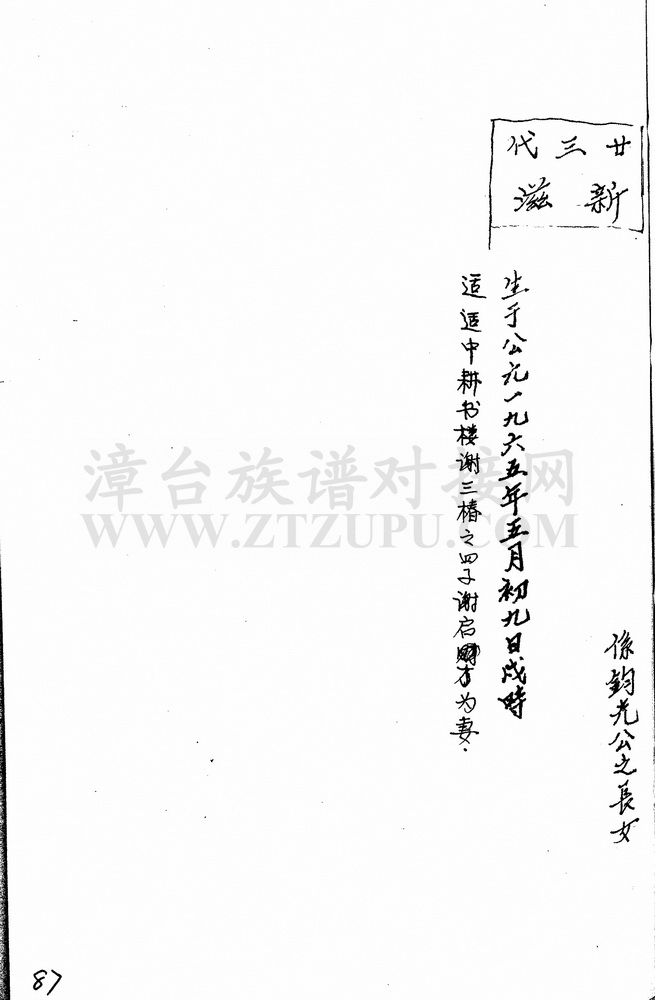 廿三代
新滋
係鈞光公之長女
生于公元一九六五年五月初九日戌時
适适中耕书楼谢三椿之四子谢启才为妻.
漳台族谱对接网
WWW.ZTZUPU.COM
87